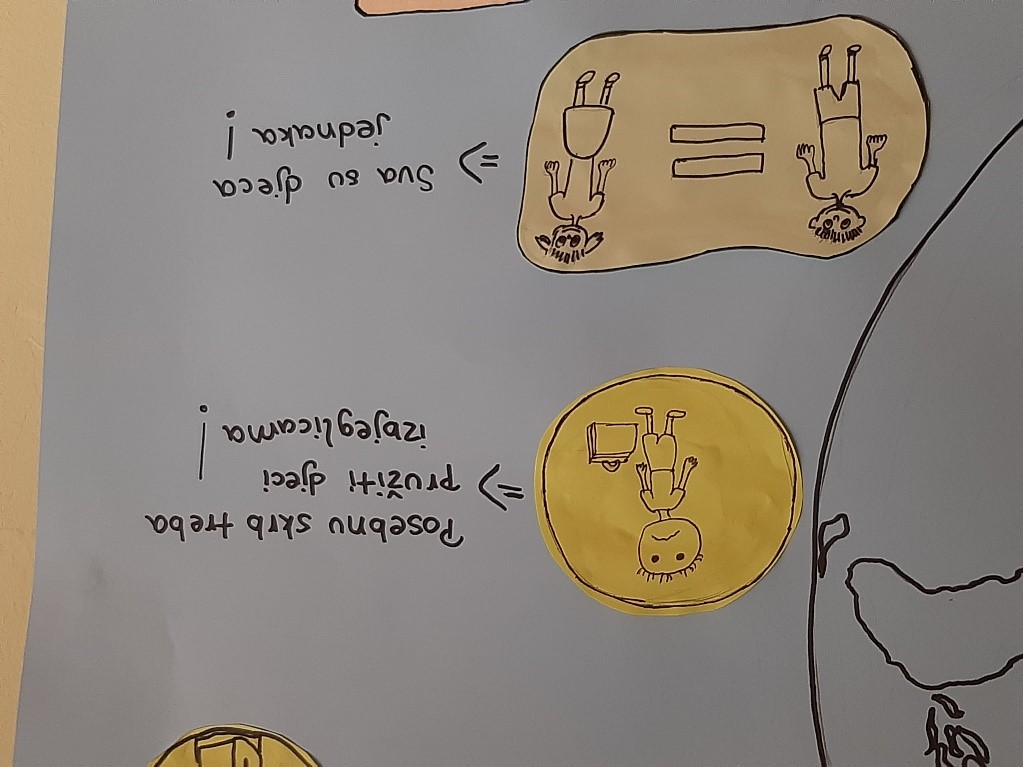 => Posebnu skrb treba
pružiti djeci
izbjeglicama!
=> Sva su djeca
jednaka!